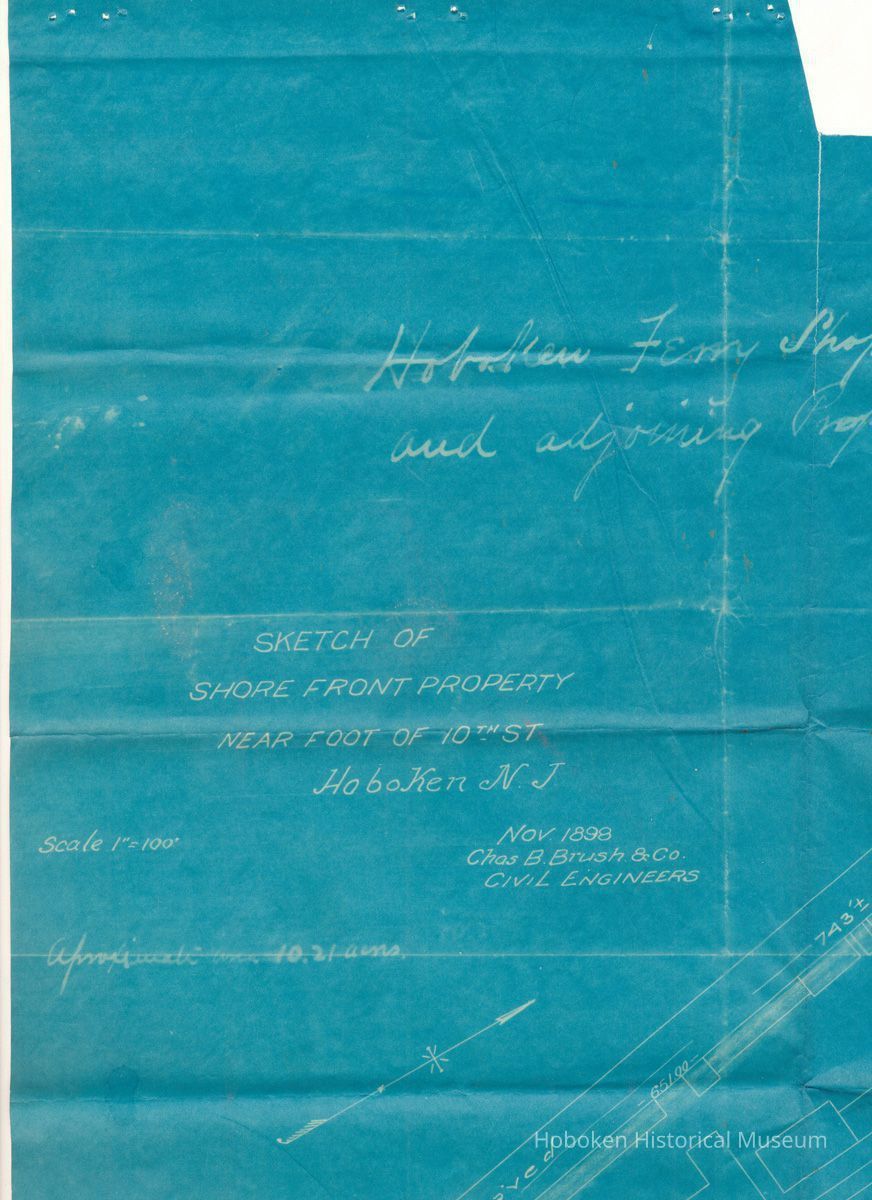 Hoboken Ferry Shop
and adjoining Prop
SKETCH OF
SHORE FRONT PROPERTY
NEAR FOOT OF 10TH ST
Hoboken N. J
Scale 1"=100'
Nov. 1898
Chas B. Brush & Co.
CIVIL ENGINEERS
Aproximate area 10.21 acres.
743'±
65100
ived
Hoboken Historical Museum